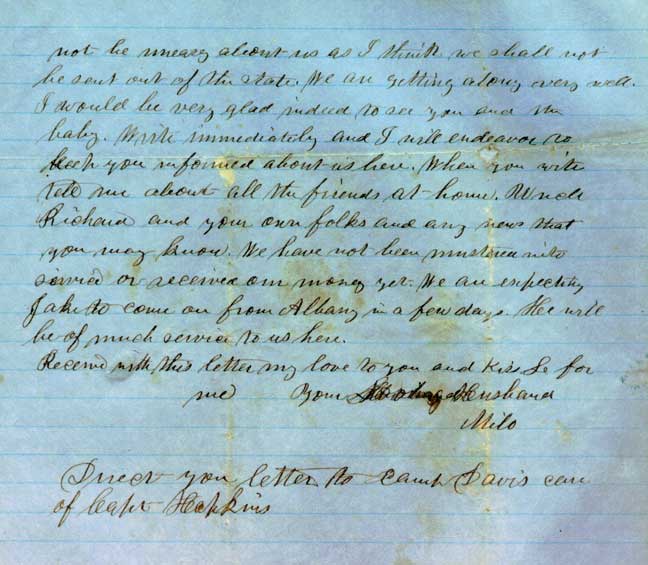 not be uneasy about us as I think we shall not
be sent out of the state. We are getting along very well.
I would be very glad indeed to see you and the
baby. Write immediately and I will endeavor to
keep you informed about us here. When you write
tell me about all the friends at home. Uncle
Richard and your own folks and any news that
you may know. We have not been mustered into
service or received our money yet. We are expecting
Jake to come on from Albany in a few days. Hee will
be of much service to us here.
Receive with this letter my love to you and Kiss for
me Your Husband
Milo
Direct you letter to camp Davis care
of Capt Hopkins